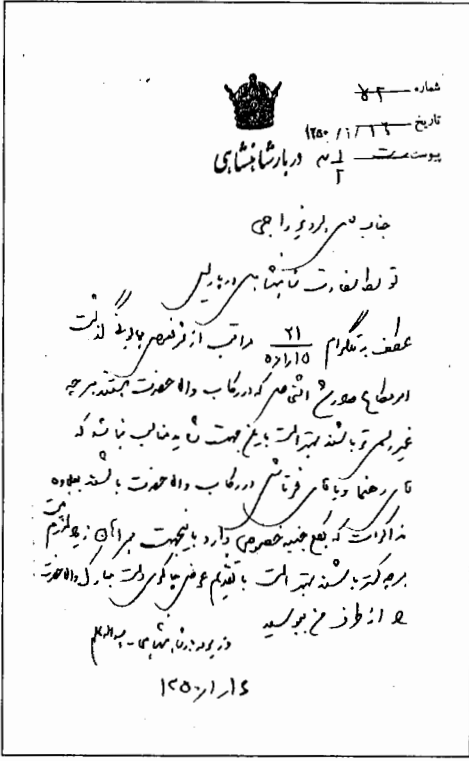 شماره ۵۲
تاریخ ۱۳۵۰/۱/۱۶
پیوست
دربار شاهنشاهی
جناب آقای پرویز راجی
توسط سفارت شاهنشاهی در پاریس
عطف به تلگرام ۲۱ مراتب از شرفعرض پیشگاه گذشت
۵۰/۱/۱۵
امر مطاع صادر شد اشخاصی که در رکاب والاحضرت هستند هر چه
غیر رسمی‌تر باشند بهتر است باین جهت شاید مناسب نباشد که
آقای رهنما و یا آقای در رکاب والاحضرت باشند بعلاوه
مذاکرات که جنبه خصوصی دارد باینجهت همراهان
هر چه کمتر باشند بهتر است با تقدیم عرض چاکری دست مبارک والاحضرت
را از طرف من ببوسید
وزیر دربار شاهنشاهی - اسدالله علم
۱۳۵۰/۱/۱۶